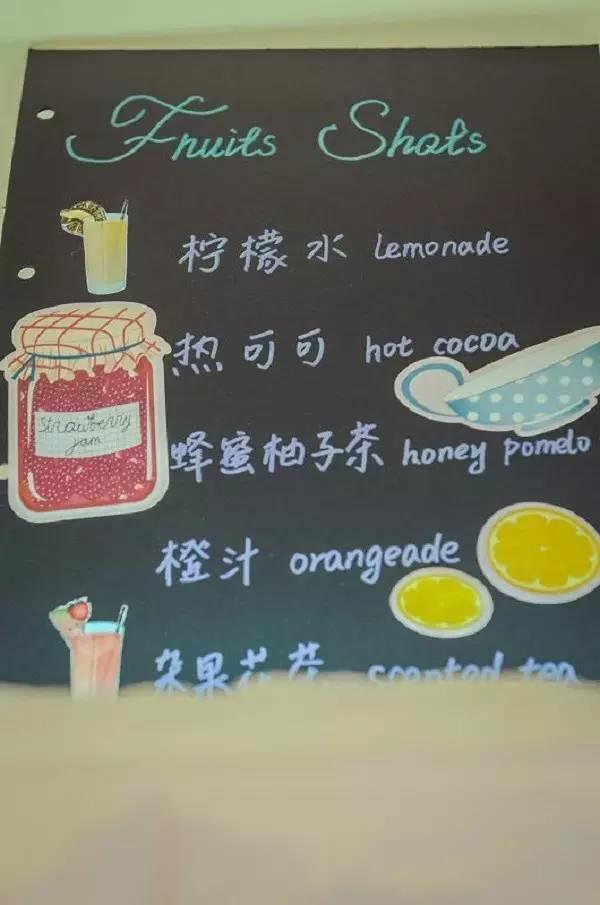 Fruits Shots
柠檬水 Lemonade
热可可 hot cocoa
strawberry
jam
蜂蜜柚子茶 honey pomelo
橙汁 orangeade
杂果花茶 scented tea